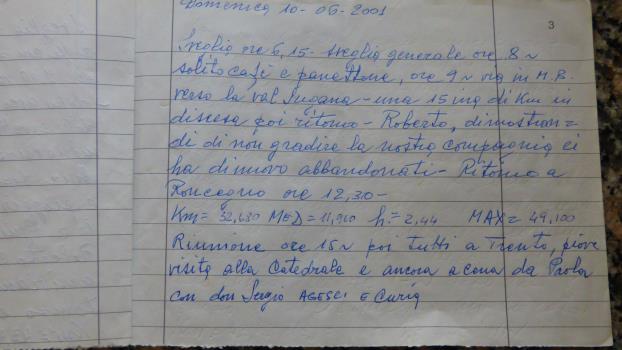 Domenica 10-06-2001
3
Sveglia ore 6,15- sveglia generale ore 8~
solito caffè e panettone, ore 9~ via in M.B.
verso la val Sugana - una 15ina di Km in
discesa poi ritorno - Roberto, dimostran=
do di non gradire la nostra compagnia ci
ha di nuovo abbandonati - Ritorno a
Roncegno ore 12,30-
Km= 32,630 MED= 11,910 h= 2,44 MAX= 49,100
Riunione ore 15~ poi tutti a Trento, piove
visita alla Catedrale e ancora a cena da Paola
con don Sergio AGESCI E Curia